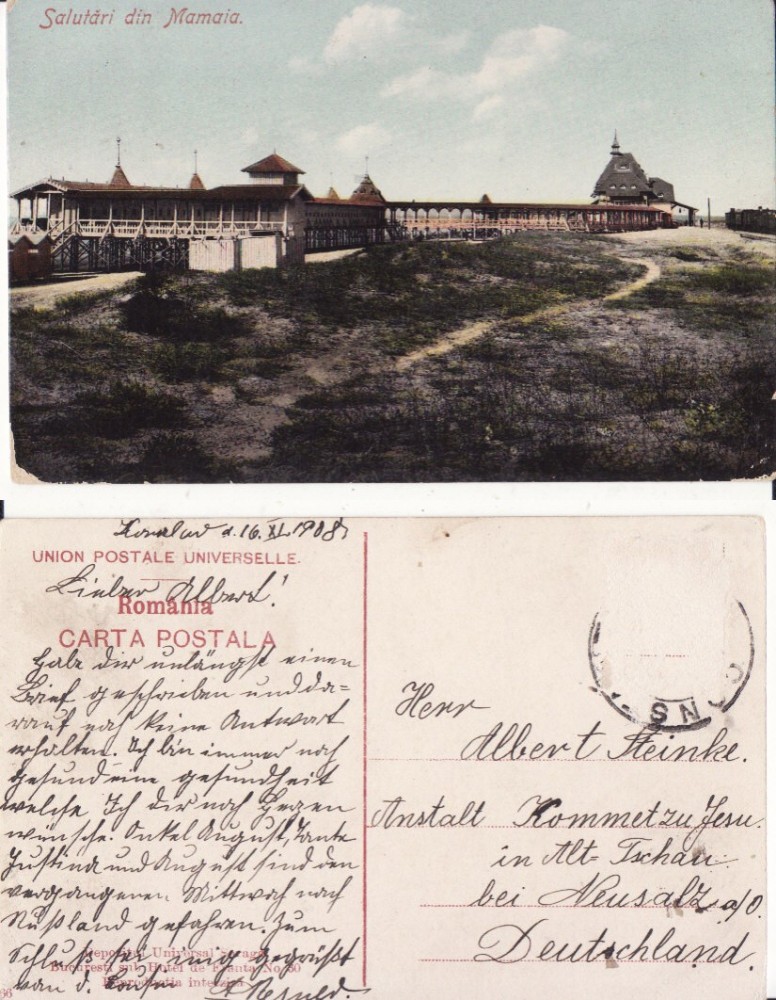 Salutări din Mamaia.
d. 16. XI. 1908
UNION POSTALE UNIVERSELLE.
Lieber Albert!
România
CARTA POSTALA
Habe dir unlängst einen
Brief geschrieben und da=
rauf noch keine Antwort
erhalten. Ich bin immer noch
gesund eine gesundheit
welche Ich dir nach Herzen
wünsche. Onkel August, Tante
Justina und August sind den
vergangenen Mittwoch nach
Rußland gefahren. Zum
Schluß sei innig gegrüßt
von d.
Depositul Universal Saraga
Bucuresti sub Hotel de Franta No 60
Reproductia interzisa
66
Herr
Albert Steinke.
Anstalt Kommet zu Jesu.
in Alt-Tschau
bei Neusalz a/O.
Deutschland.